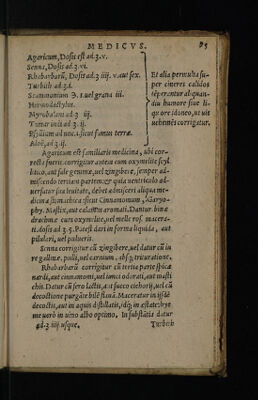 MEDICVS. 85
Agaricum, Dosis est ad.ʒ.v.
Senna, Dosis ad.ʒ.vi.
Rhabarbarū, Dosis ad.ʒ.iiij. v. aut sex.
Turbith ad.ʒ.i.
Scammonium Э.i. uel grana iij.
Hermodactylus.
Myrobalani ad.ʒ iij
Tamarindi ad.ʒ.ij.
Psyllium ad unc.i. sicut fumus terræ.
Aloë, ad.ʒ.ij.
Et alia permulta su-
per cineres calidos
tēperantur aliquan-
diu humore siue li-
quore idoneo, ut ut
uehemēs corrigatur.
Agaricum est familiaris medicina, ubi cor-
recta fuerit. corrigitur autem cum oxymelite scyl
litico, aut sale gemmæ, uel zingibere, semper ad-
miscendo tertiam partem: & quia uentriculo ad-
uersatur sua leuitate, debet admisceri aliqua me-
dicina stomachica sicut Cinnamomum, Garyo-
phy. Mastix, aut calamus aromati. Dantur binæ
drachmæ cum oxymelite, uel melle rosac. macera-
ti. dosis ad ʒ.5. Potest dari in forma liquida, aut
pilulari, uel pulueris.
Senna corrigitur cū zingibere, uel datur cū iu
re gallinæ, pulli, uel caruium, absq; trituratione.
Rhabarbarū corrigitur cū tertia parte spicæ
nardi, aut cinnamomi, uel iunci odorati, aut masti
chis. Datur cū sero lactis, aut succo cichorij, uel cū
decoctione purgāte bilē flauā. Maceratur in ijsdē
decoctis, aut in aquis distillatis, idq; in æstate: hye
me uerò in uino albo optimo. In substātia datur
ad.ʒ iiij usque. Turbith